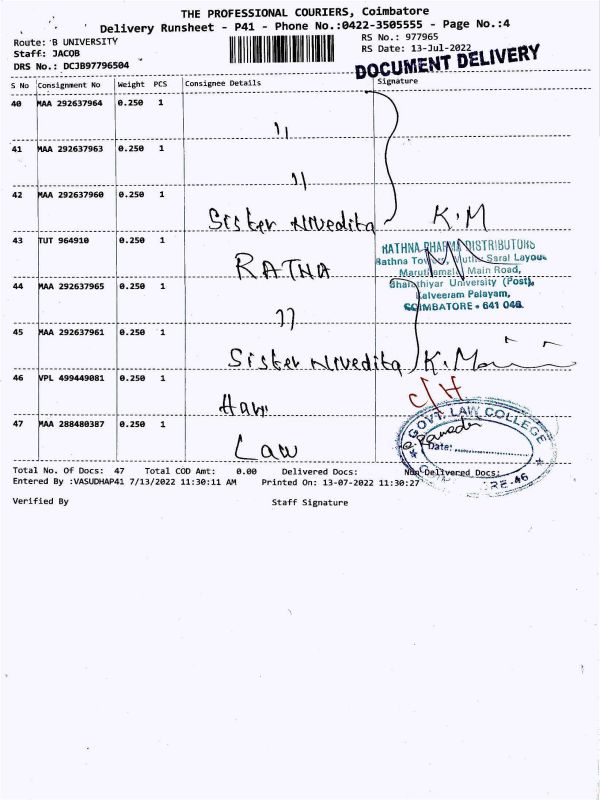 THE PROFESSIONAL COURIERS, Coimbatore
Delivery Runsheet - P41 - Phone No.:0422-3505555 - Page No.:4
Route: 'B UNIVERSITY
RS No.: 977965
Staff: JACOB
RS Date: 13-Jul-2022
DRS No.: DCJB97796504
DOCUMENT DELIVERY
S No Consignment No Weight PCS Consignee Details Signature
40 MAA 292637964 0.250 1 "
41 MAA 292637963 0.250 1 "
42 MAA 292637960 0.250 1 Sister Nivedita K.M
43 TUT 964910 0.250 1 RATNA
RATHNA PHARMA DISTRIBUTORS
Rathna Tower, Muthu Saral Layout
Maruthamalai Main Road,
Bharathiyar University (Post),
Kalveeram Palayam,
COIMBATORE - 641 046.
44 MAA 292637965 0.250 1 "
45 MAA 292637961 0.250 1 Sister Nivedita K.M
46 VPL 499449081 0.250 1
C/H
47 MAA 288480387 0.250 1 Law
GOVT. LAW COLLEGE
Date:
RE-46
Total No. Of Docs: 47 Total COD Amt: 0.00 Delivered Docs: Non Delivered Docs:
Entered By :VASUDHAP41 7/13/2022 11:30:11 AM Printed On: 13-07-2022 11:30:27
Verified By Staff Signature